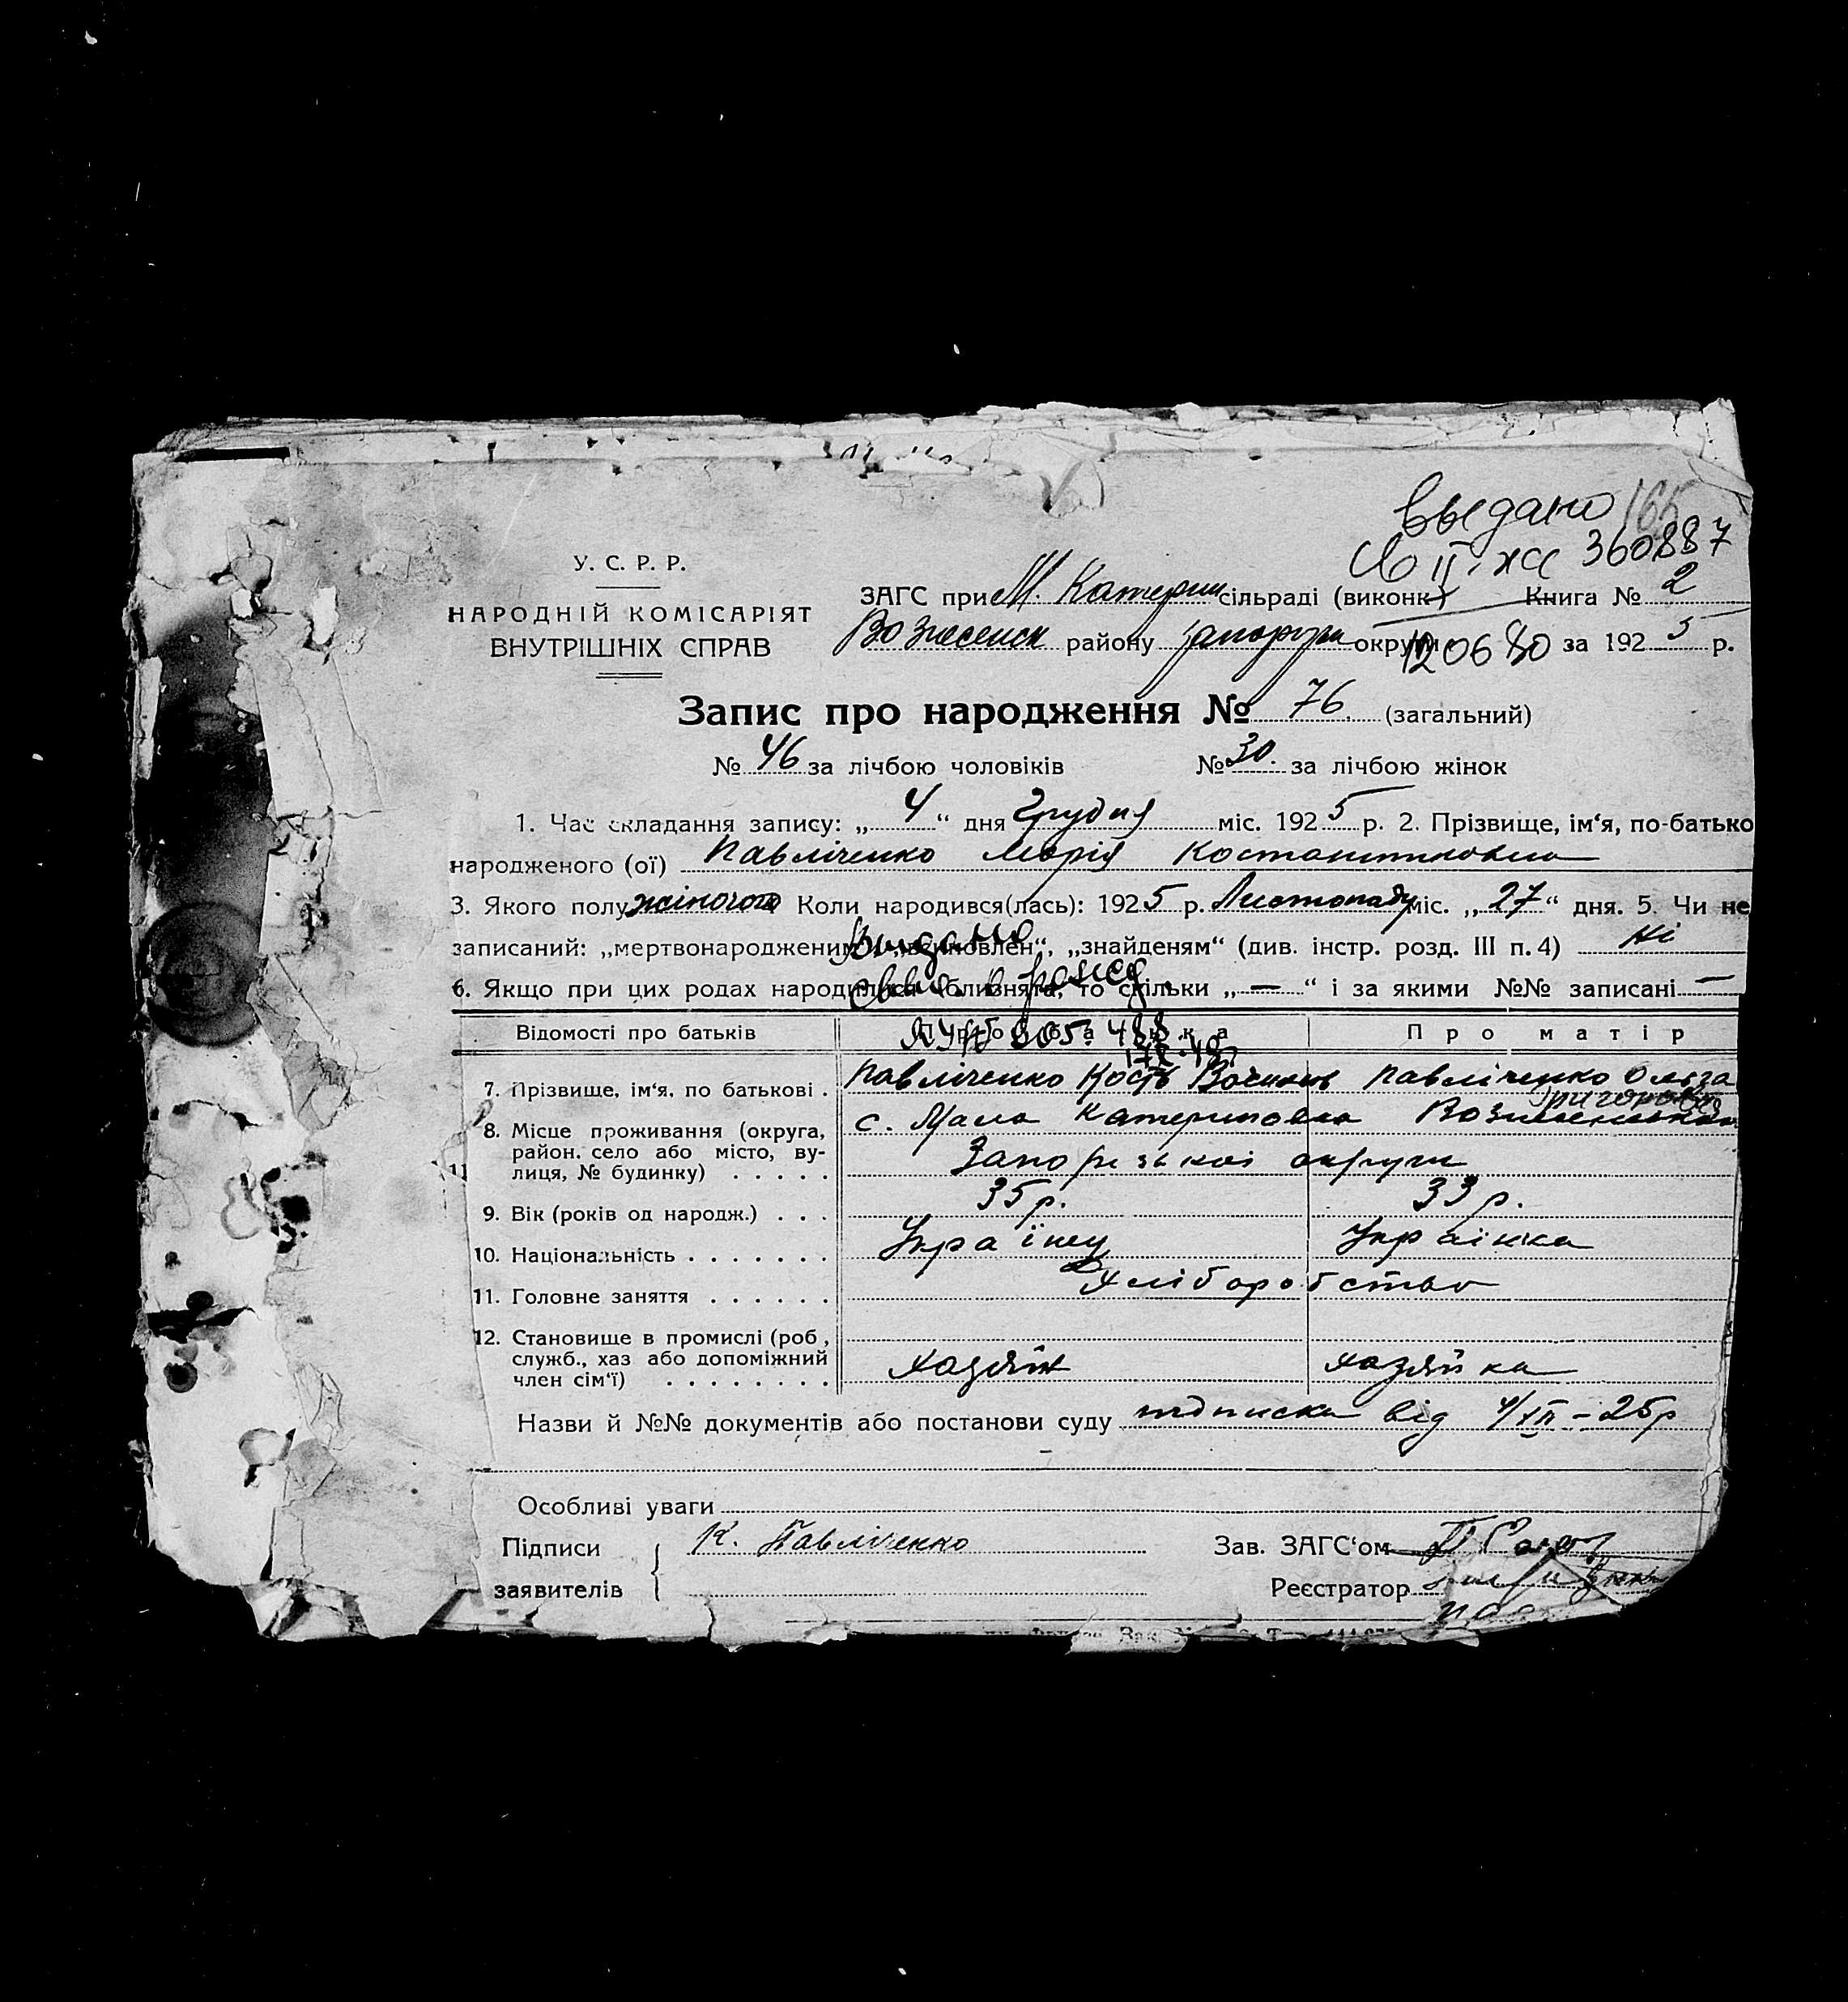 165
выдано
св II-ЖС 360887
120680
У. С. Р. Р.
НАРОДНІЙ КОМІСАРІЯТ
ВНУТРІШНІХ СПРАВ
ЗАГС при М. Катерин сільраді (виконк) Книга № 2
Вознесенск району округи за 1925 р.
Запис про народження № 76 (загальний)
№ 46 за лічбою чоловіків № 30. за лічбою жінок
1. Час складання запису: „4“ дня Грудня міс. 1925 р. 2. Прізвище, ім‘я, по-батько
народженого (ої) Павліченко Марія Костантиновна
3. Якого полу жіночого Коли народився(лась): 1925 р. Листопаду міс. „27“ дня. 5. Чи не
записаний: „мертвонародженим“, „всиновлен“, „знайденям“ (див. інстр. розд. III п. 4) Ні
Выдано
6. Якщо при цих родах народилися близнята, то скільки „—“ і за якими №№ записані —
Відомості про батьків Про батька Про матір
7. Прізвище, ім‘я, по батькові . Павліченко Кость Павліченко Ольга
Григоровна
8. Місце проживання (округа, район. село або місто, ву-лиця, № будинку) . . . . . с. Мала Катериновка
Запорізькоі округи
9. Вік (років од народж.) . . . 35 р. 33 р.
10. Національність . . . . . . . Украінец Украінка
11. Головне заняття . . . . . . Хліборобство
12. Становище в промислі (роб, служб., хаз або допоміжний член сім‘ї) . . . . . . . . хазяїн хазяйка
Назви й №№ документів або постанови суду підписка від 4/XII – 25 р
Особливі уваги
Підписи К. Павліченко Зав. ЗАГС‘ом
заявителів Реєстратор